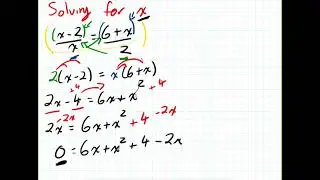 Solving for x
((x-2)/x) = ((6+x)/2)
2(x-2) = x(6+x)
+4 +4
2x-4 = 6x+x²
-2x -2x
2x = 6x+x²+4
0 = 6x+x²+4-2x